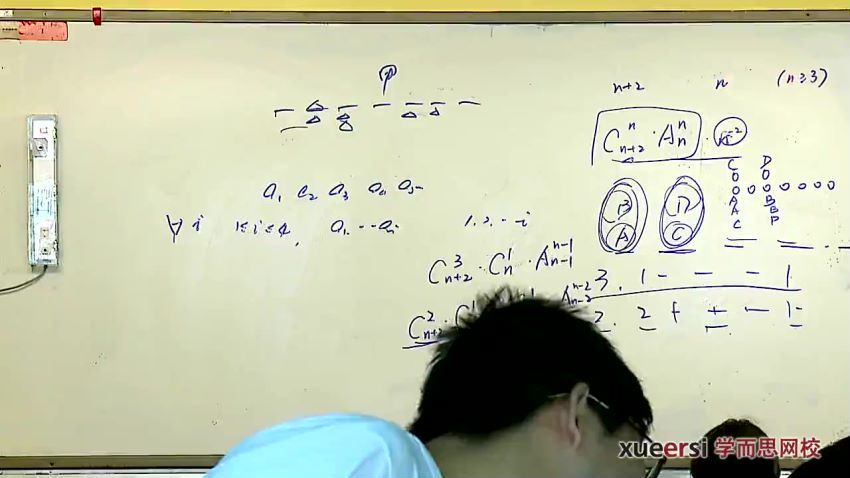 n+2 n (n≥3)
C_{n+2}^{n} · A_{n}^{n} ·
C D
B A D C
A B
A B
C P
a₁ a₂ a₃ a₄ a₅
∀ i 1≤i≤4, a₁ ... aᵢ 1, 2, ... i
C_{n+2}^{3} · C_{n}^{1} · A_{n-1}^{n-1} 3. 1 - - - 1
C_{n+2}^{2} · A_{n-2}^{n-2} 2. 2 + + - 1
xueersi 学而思网校